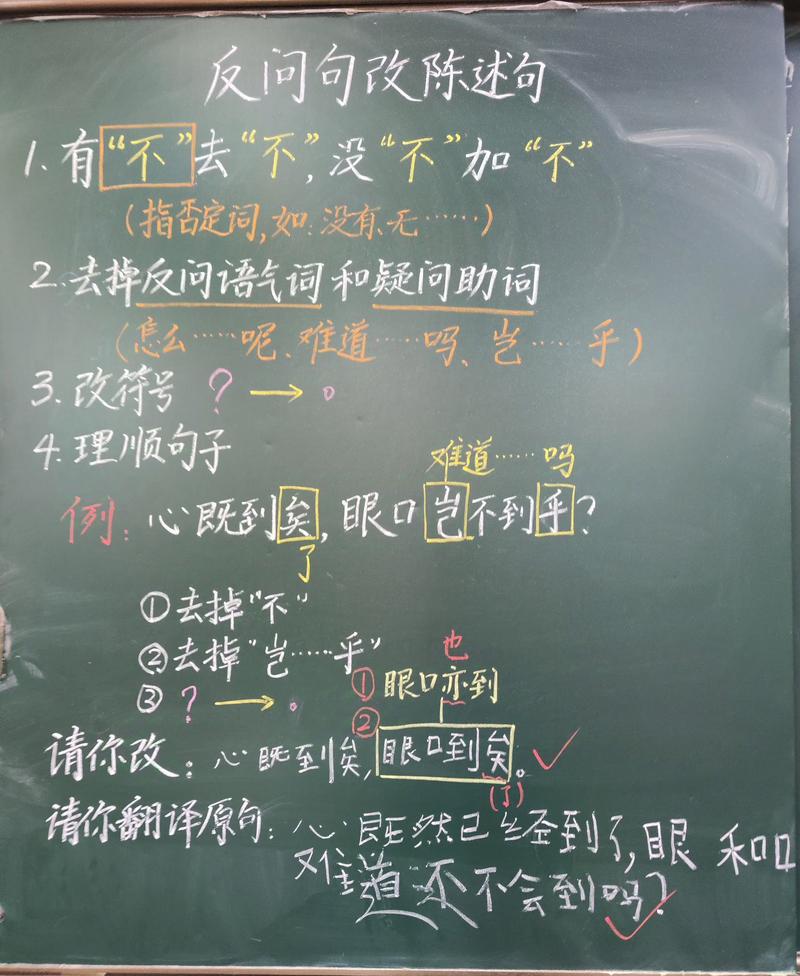 反问句改陈述句
1.有“不”去“不”,没“不”加“不”
(指否定词,如:没有、无……)
2.去掉反问语气词和疑问助词
(怎么……呢、难道……吗、岂……乎)
3.改符号 ?→。
4.理顺句子
难道……吗
例:心既到矣,眼口岂不到乎?
了
①去掉“不”
②去掉“岂……乎”
也
③?→。
①眼口亦到
②
请你改:心既到矣,眼口到矣。
(了)
请你翻译原句:心既然已经到了,眼和口
难道还不会到吗?